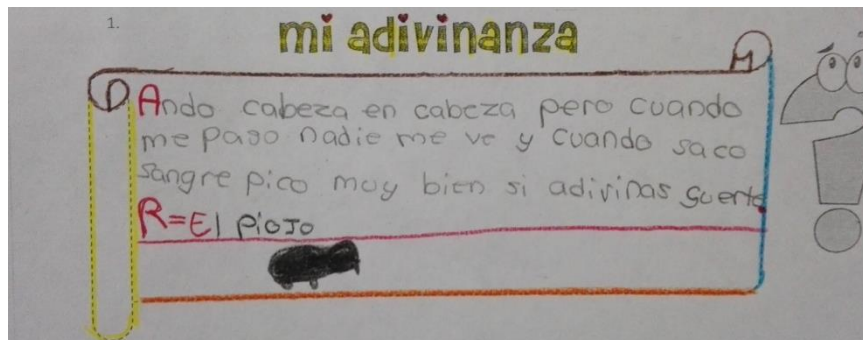 1.
mi adivinanza
D
M
Ando cabeza en cabeza pero cuando
me paso nadie me ve y cuando saco
sangre pico muy bien si adivinas suerte
R=El piojo